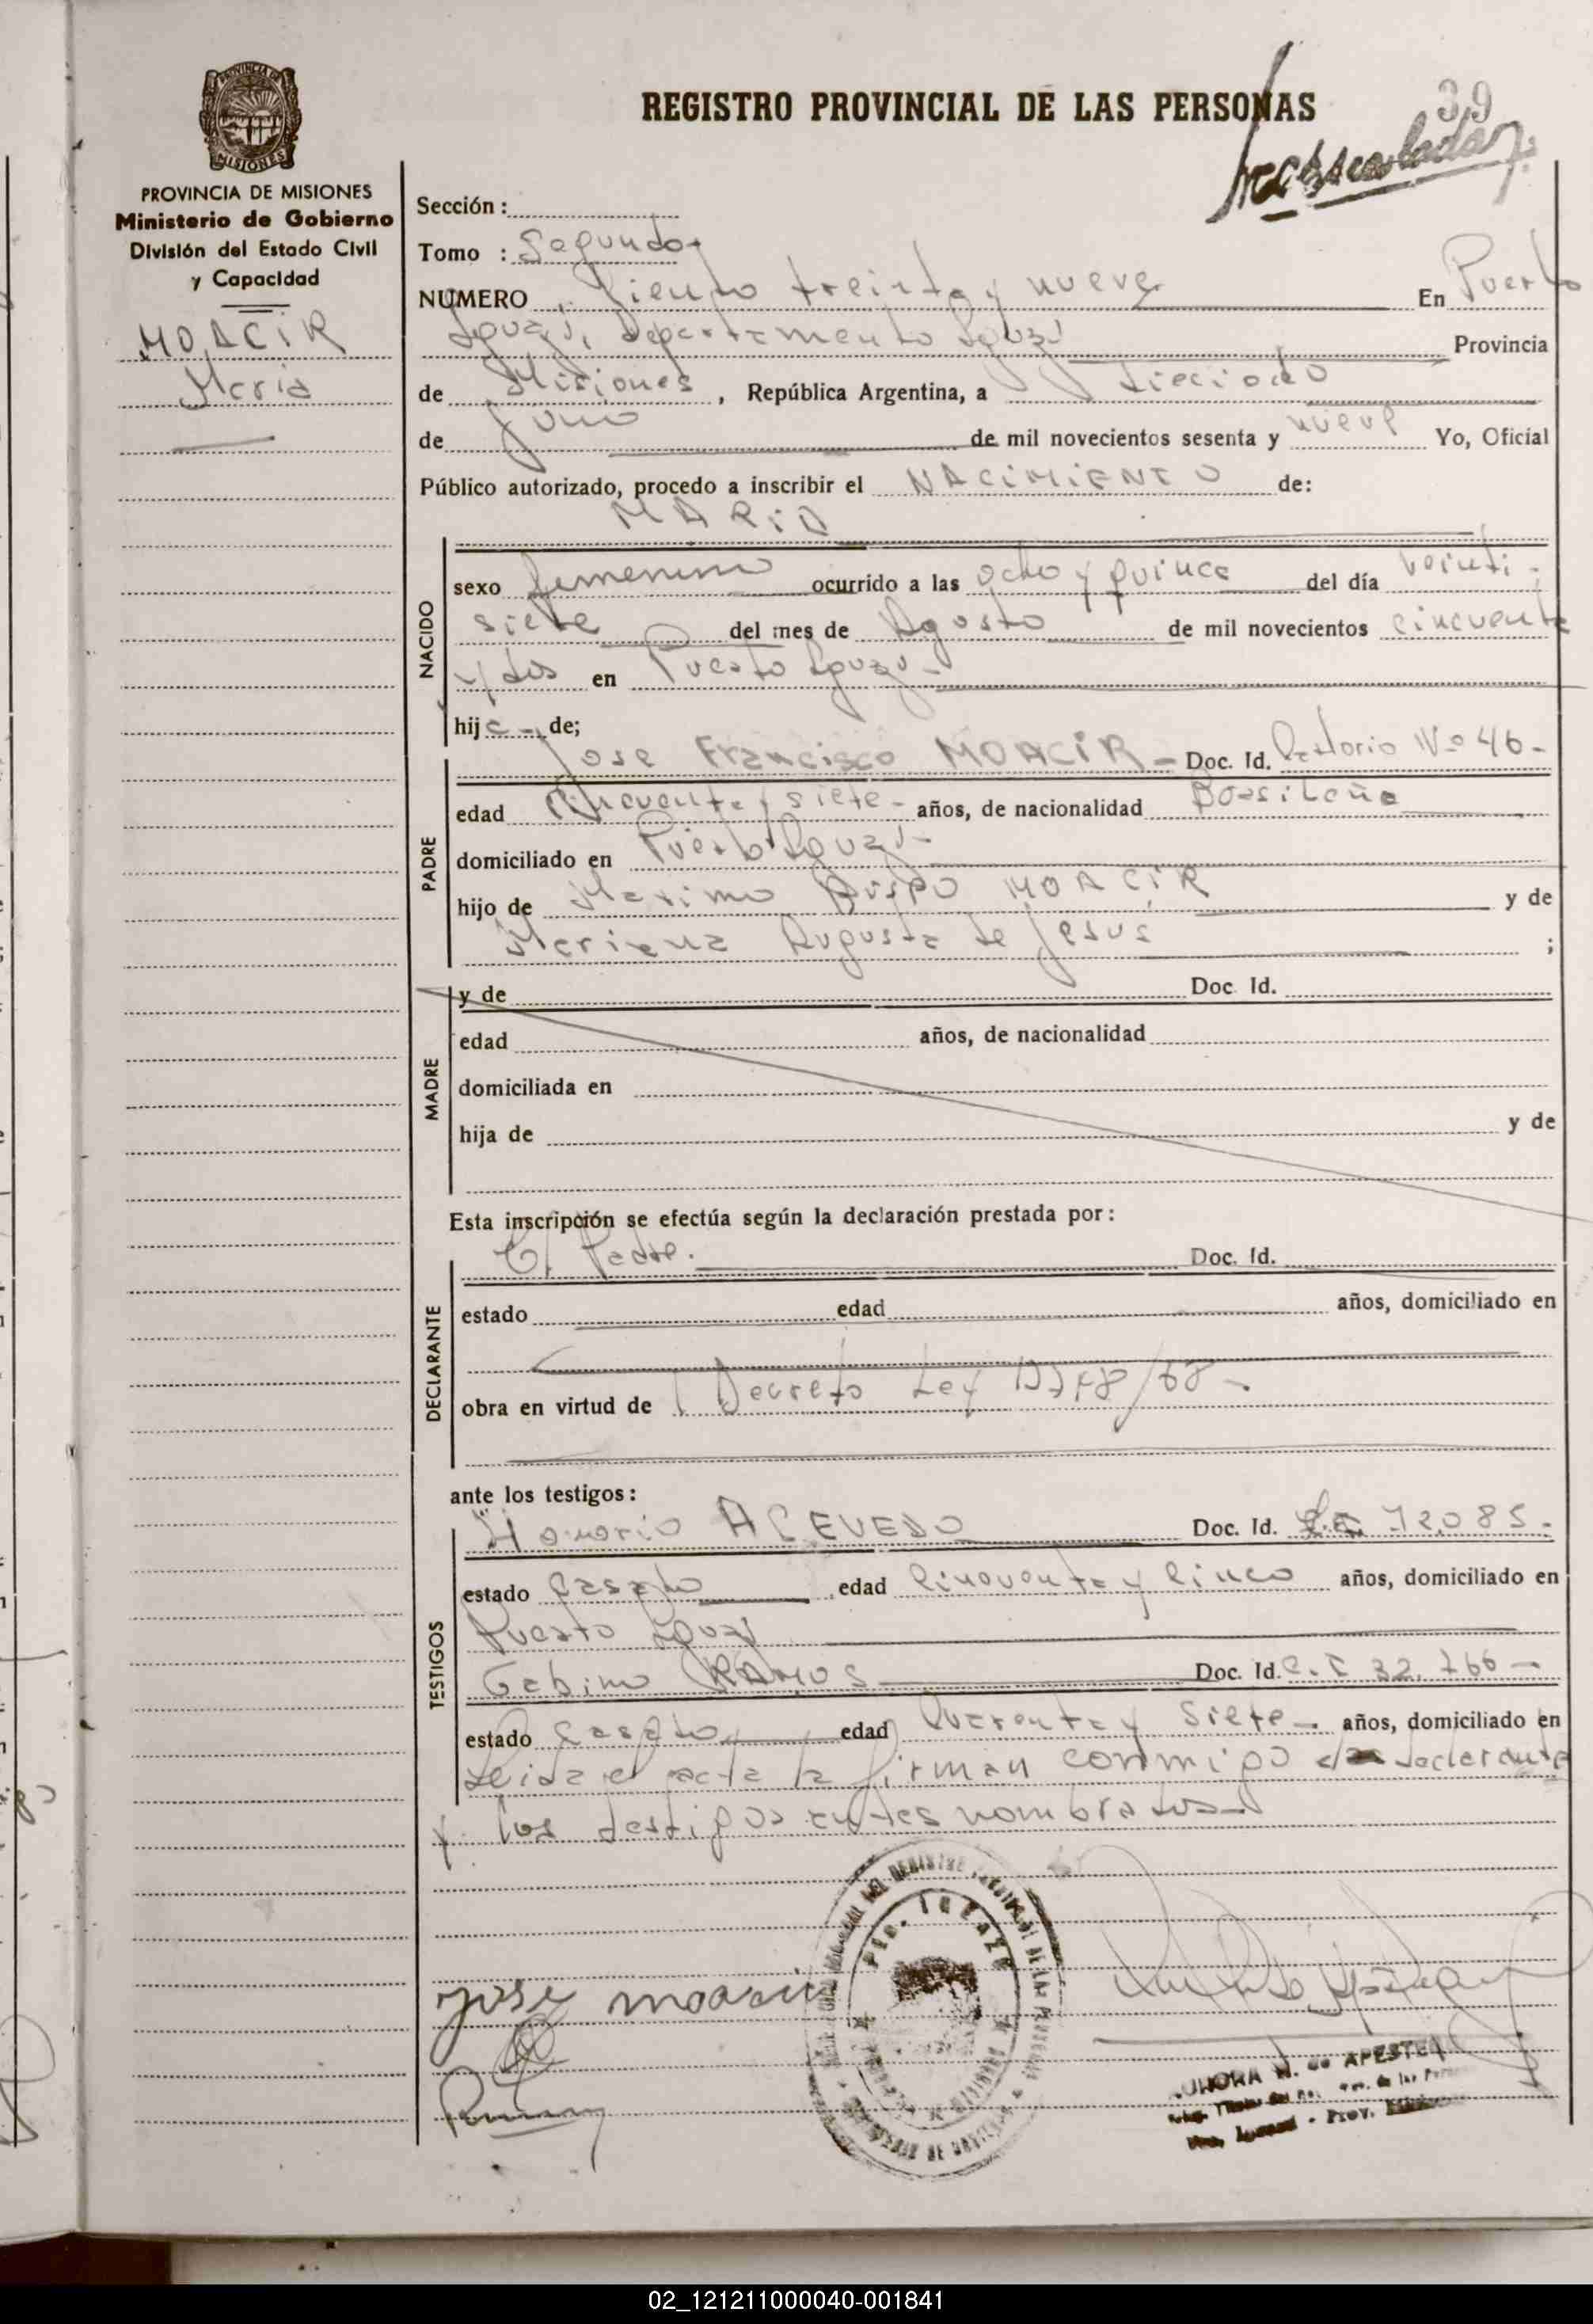 39
REGISTRO PROVINCIAL DE LAS PERSONAS
PROVINCIA DE MISIONES
MISIONES
PROVINCIA DE MISIONES
Ministerio de Gobierno
División del Estado Civil
y Capacidad
MOACIR
Maria
Sección :
Tomo : Segundo
NUMERO Ciento treinta y nueve En Puerto
Iguazú, Departamento Iguazú Provincia
de Misiones, República Argentina, a dieciocho
de Junio de mil novecientos sesenta y nueve Yo, Oficial
Público autorizado, procedo a inscribir el NACIMIENTO de:
MARIA
NACIDO
sexo femenino ocurrido a las ocho y quince del día veinti-
siete del mes de Agosto de mil novecientos cincuenta
y dos en Puerto Iguazú-
hija de;
PADRE
Jose Francisco MOACIR - Doc. Id. Nº 46-
edad Cincuenta y siete- años, de nacionalidad Brasileña
domiciliado en Puerto Iguazú-
hijo de Maximo MOACIR y de
Mariana Augusta de Jesus ;
MADRE
y de Doc. Id.
edad años, de nacionalidad
domiciliada en
hija de y de
Esta inscripción se efectúa según la declaración prestada por:
DECLARANTE
El Padre. Doc. Id.
estado edad años, domiciliado en
obra en virtud de Decreto Ley /68-
ante los testigos:
TESTIGOS
Honorio ACEVEDO Doc. Id. 72.085-
estado Casado edad Cincuenta y Cinco años, domiciliado en
Puerto Iguazú
Gabino RAMOS Doc. Id. C.I 32.766-
estado Casado edad Cuarenta y Siete- años, domiciliado en
Leida el acta la firman conmigo declarante
y los testigos antes nombrados-
Jose moacir
Pto. IGUAZU
N. de APESTEY
02_121211000040-001841